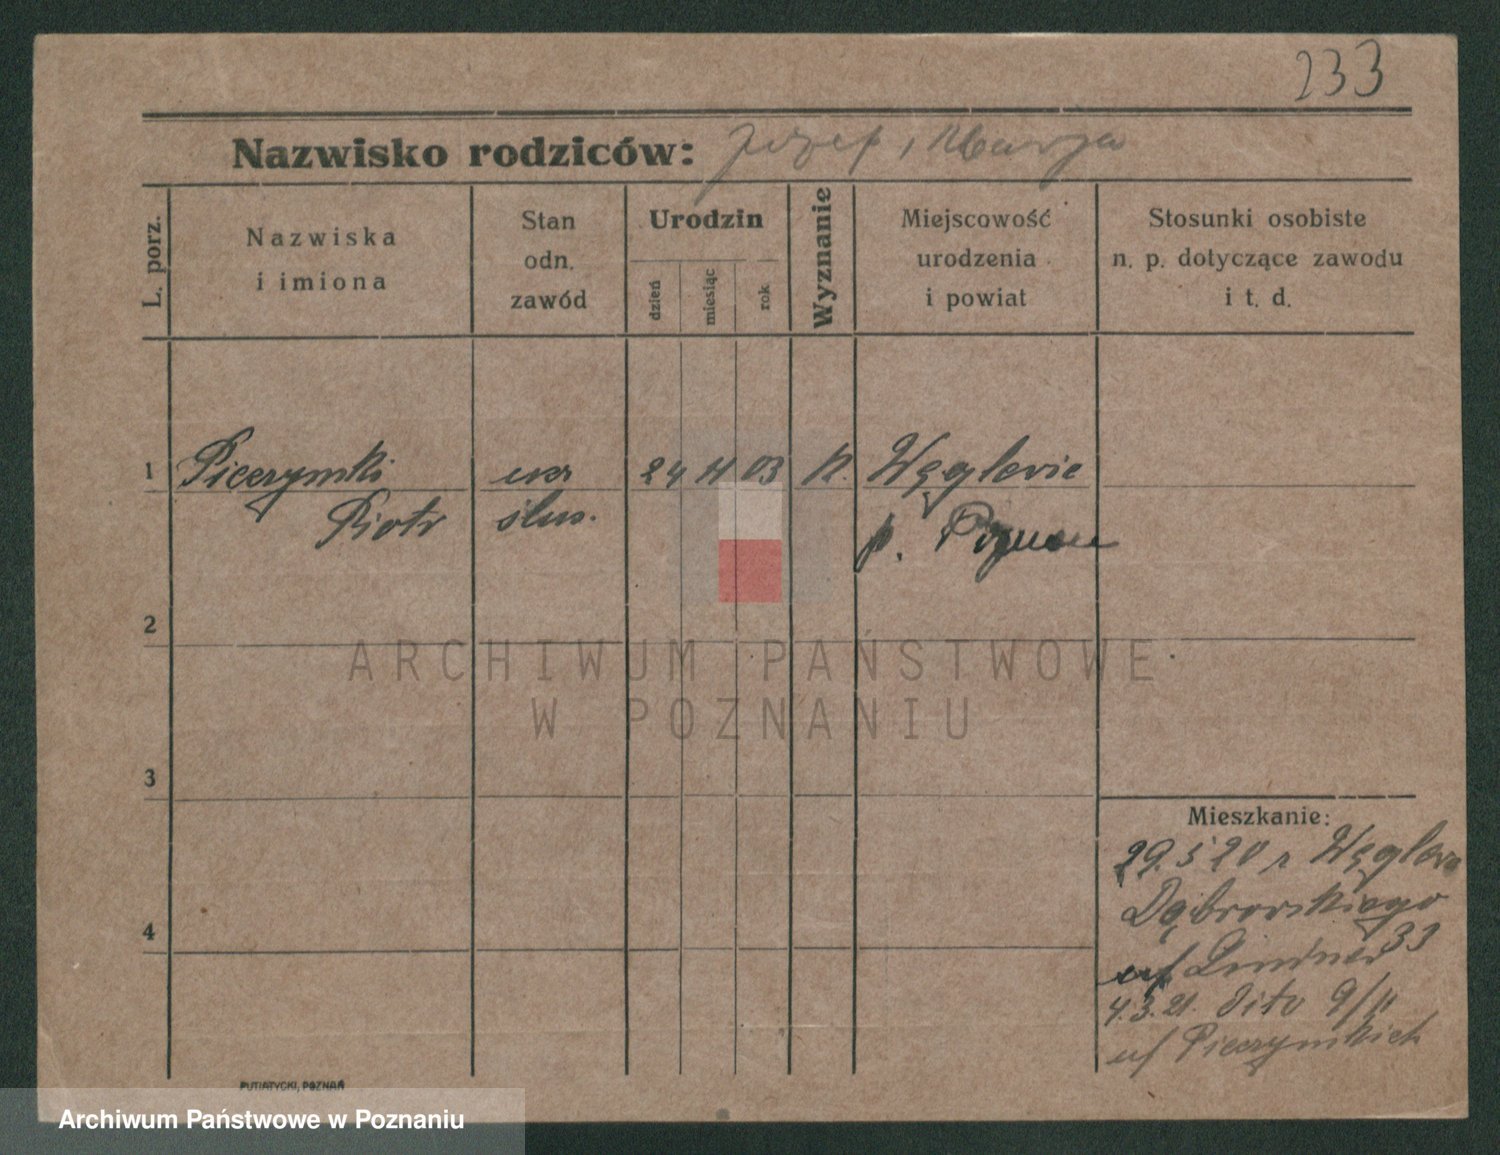 233
Nazwisko rodziców: Józef, Marja
L. porz.
Nazwiska
i imiona
Stan
odn.
zawód
Urodzin
dzień
miesiąc
rok
Wyznanie
Miejscowość
urodzenia
i powiat
Stosunki osobiste
n. p. dotyczące zawodu
i t. d.
1 Pieczyński ucz 24 4 03 K. Węglewie
Piotr ślus. p. Poznań
2
ARCHIWUM PAŃSTWOWE
W POZNANIU
3
Mieszkanie:
29.5 20 z Węglewa
Dąbrowskiego
33
4
4.3.21. dito 9/11
PUTIATYCKI, POZNAŃ
Archiwum Państwowe w Poznaniu